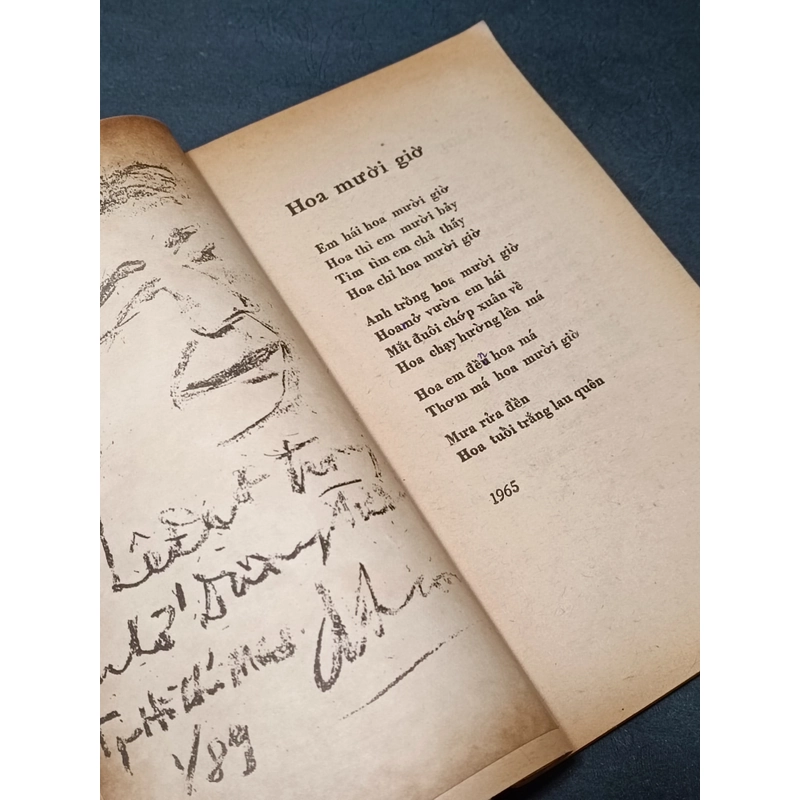 LêĐạt trong
Dương
Tp Hồ Chí Minh
1/89
Hoa mười giờ
Em hái hoa mười giờ
Hoa thì em mười bảy
Tìm tìm em chả thấy
Hoa chỉ hoa mười giờ
Anh trồng hoa mười giờ
Hoa mở vườn em hái
Mắt đuôi chớp xuân về
Hoa chạy hường lên má
Hoa em đền hoa má
Thơm má hoa mười giờ
Mưa rửa đền
Hoa tuổi trắng lau quên
1965